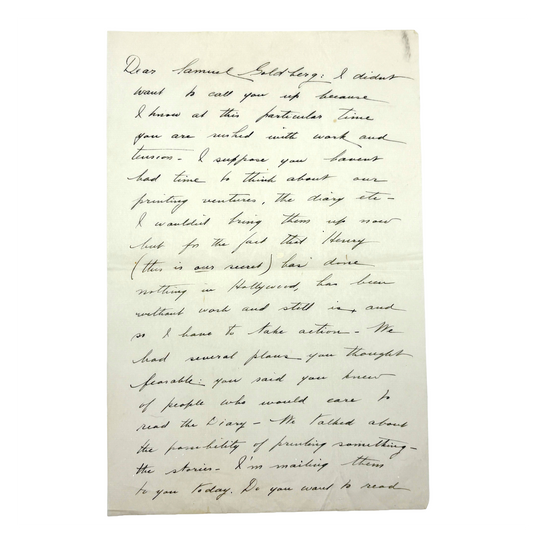 Dear Samuel Goldberg: I didnt
want to call you up because
I know at this particular time
you are rushed with work and
tension - I suppose you havent
had time to think about our
printing ventures, the diary etc -
I wouldn't bring them up now
but for the fact that Henry
(this is our secret) has done
nothing in Hollywood, has been
without work and still is, and
so I have to take action - We
had several plans you thought
feasable: you said you knew
of people who would care to
read the Diary - We talked about
the possibility of printing something -
the stories - I'm mailing them
to you today. Do you want to read